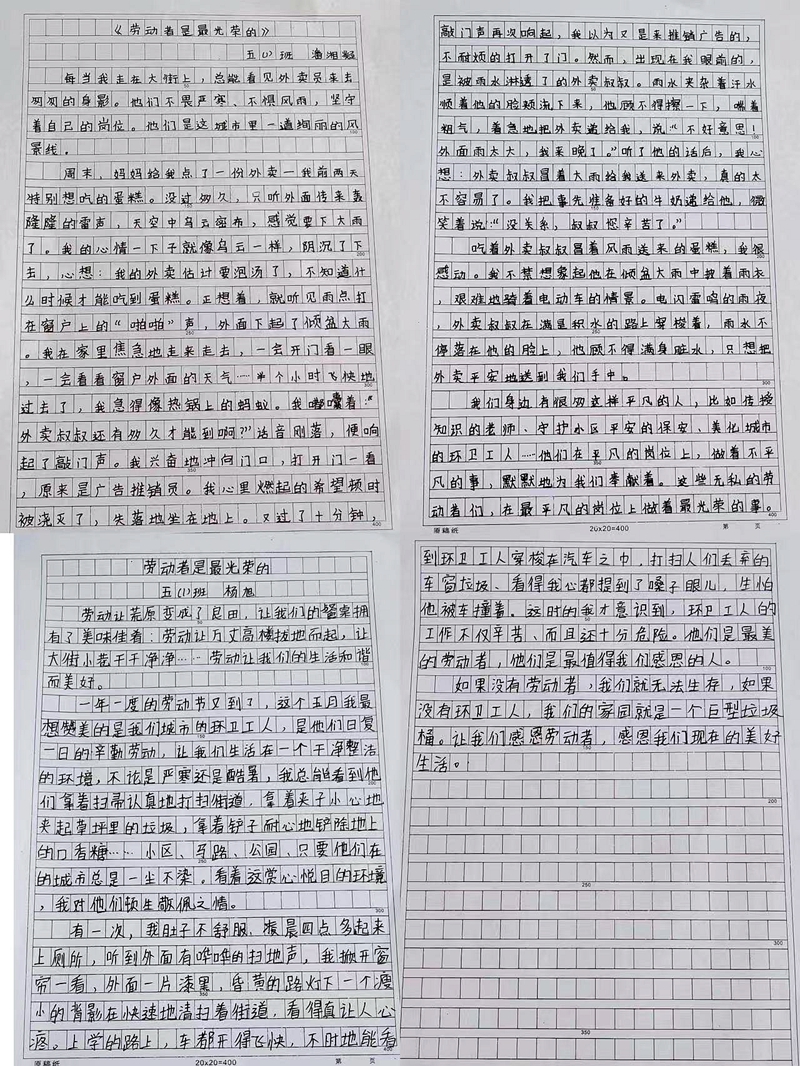 《劳动者是最光荣的》
五(1)班 潘湘凝
每当我走在大街上，总能看见外卖员来去
匆匆的身影。他们不畏严寒、不惧风雨，坚守
着自己的岗位。他们是这城市里一道绚丽的风
景线。
周末，妈妈给我点了一份外卖—我前两天
特别想吃的蛋糕。没过多久，只听外面传来轰
隆隆的雷声，天空中乌云密布，感觉要下大雨
了。我的心情一下子就像乌云一样，阴沉了下
去，心想：我的外卖估计要泡汤了，不知道什
么时候才能吃到蛋糕。正想着，就听见雨点打
在窗户上的“啪啪”声，外面下起了倾盆大雨
。我在家里焦急地走来走去，一会开门看一眼
，一会看看窗户外面的天气……半个小时飞快地
过去了，我急得像热锅上的蚂蚁。我嘟囔着：“
外卖叔叔还有多久才能到啊?”话音刚落，便响
起了敲门声。我兴奋地冲向门口，打开门一看
，原来是广告推销员。我心里燃起的希望顿时
被浇灭了，失落地坐在地上。又过了十分钟，
敲门声再次响起，我以为又是来推销广告的，
不耐烦的打开了门。然而，出现在我眼前的，
是被雨水淋透了的外卖叔叔。雨水夹杂着汗水
顺着他的脸颊流下来，他顾不得擦一下，喘着
粗气，着急地把外卖递给我，说：“不好意思！
外面雨太大，我来晚了。”听了他的话后，我心
想：外卖叔叔冒着大雨给我送来外卖，真的太
不容易了。我把事先准备好的牛奶递给他，微
笑着说：“没关系，叔叔您辛苦了。”
吃着外卖叔叔冒着风雨送来的蛋糕，我很
感动。我不禁想象起他在倾盆大雨中披着雨衣
，艰难地骑着电动车的情景。电闪雷鸣的雨夜
，外卖叔叔在满是积水的路上穿梭着，雨水不
停落在他的脸上，他顾不得满身脏水，只想把
外卖平安地送到我们手中。
我们身边有很多这样平凡的人，比如传授
知识的老师、守护小区平安的保安、美化城市
的环卫工人……他们在平凡的岗位上，做着不平
凡的事，默默地为我们奉献着。这些无私的劳
动者们，在最平凡的岗位上做着最光荣的事。
原稿纸 20x20=400 第 页
劳动者是最光荣的
五(1)班 杨旭
劳动让荒原变成了良田，让我们的餐桌拥
有了美味佳肴；劳动让万丈高楼拔地而起，让
大街小巷干干净净……劳动让我们的生活和谐
而美好。
一年一度的劳动节又到了，这个五月我最
想赞美的是我们城市的环卫工人，是他们日复
一日的辛勤劳动，让我们生活在一个干净整洁
的环境，不论是严寒还是酷暑，我总能看到他
们拿着扫帚认真地打扫街道，拿着夹子小心地
夹起草坪里的垃圾，拿着铲子耐心地铲除地上
的口香糖……小区、马路、公园、只要他们在
的城市总是一尘不染。看着这赏心悦目的环境
，我对他们顿生敬佩之情。
有一次，我肚子不舒服、凌晨四点多起来
上厕所，听到外面有哗哗的扫地声，我掀开窗
帘一看，外面一片漆黑，昏黄的路灯下一个瘦
小的背影在快速地清扫着街道，看得真让人心
疼。上学的路上，车都开得飞快，不时地能看
原稿纸 20x20=400 第 页
到环卫工人穿梭在汽车之中，打扫人们丢弃的
车窗垃圾、看得我心都提到了嗓子眼儿，生怕
他被车撞着。这时的我才意识到，环卫工人的
工作不仅辛苦、而且还十分危险。他们是最美
的劳动者，他们是最值得我们感恩的人。
如果没有劳动者，我们就无法生存，如果
没有环卫工人，我们的家园就是一个巨型垃圾
桶。让我们感恩劳动者，感恩我们现在的美好
生活。